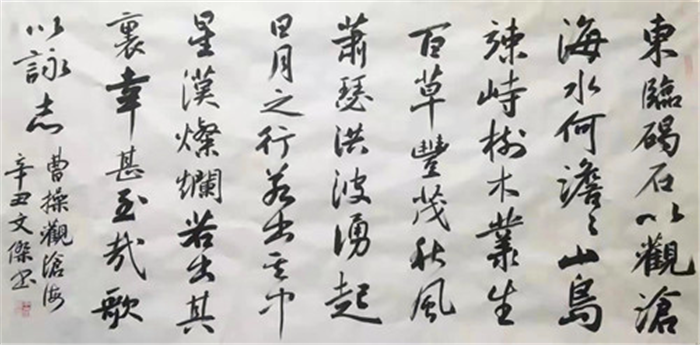 東臨碣石以觀滄
海水何澹々山島
竦峙樹木叢生
百草豐茂秋風
蕭瑟洪波湧起
日月之行若出其中
星漢燦爛若出其
裏幸甚至哉歌
以詠志
曹操觀滄海
辛丑文傑书